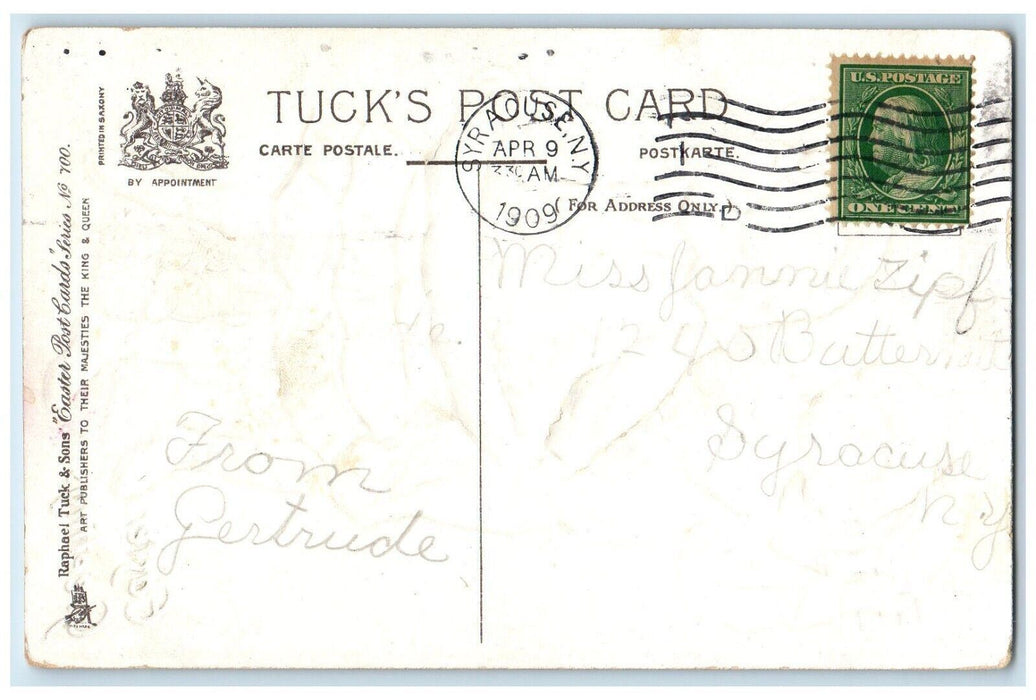 TUCK'S POST CARD
CARTE POSTALE. POSTKARTE.
(FOR ADDRESS ONLY.)
BY APPOINTMENT
PRINTED IN SAXONY
Raphael Tuck & Sons' "Easter Post Cards" Series No 700.
ART PUBLISHERS TO THEIR MAJESTIES THE KING & QUEEN
SYRACUSE, N.Y.
APR 9
330 AM
1909
D
U.S. POSTAGE
ONE CENT
Miss Jannie Zipf
1240 Butternut
Syracuse
N.Y
From
Gertrude